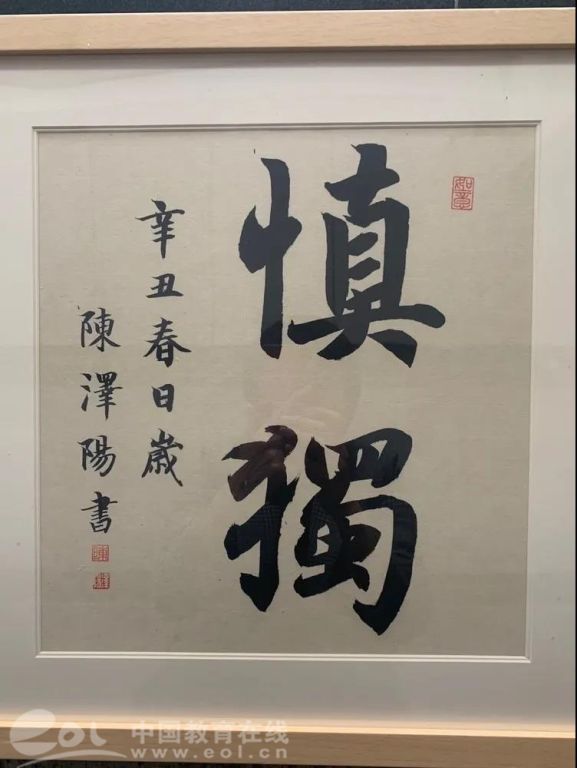 慎獨
如意
辛丑春日歲
陳澤陽書
eol 中国教育在线
www.eol.cn